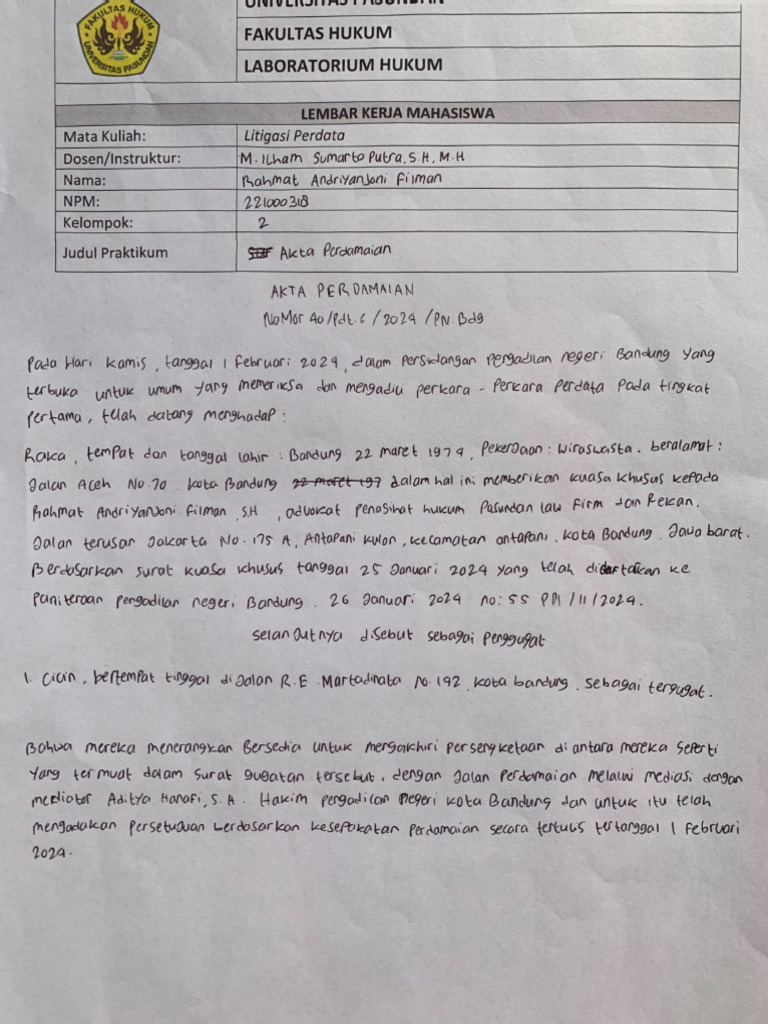 FAKULTAS HUKUM
UNIVERSITAS PASUNDAN
UNIVERSITAS PASUNDAN
FAKULTAS HUKUM
LABORATORIUM HUKUM
LEMBAR KERJA MAHASISWA
Mata Kuliah: Litigasi Perdata
Dosen/Instruktur: M. Ilham Sumarto Putra, S.H, M.H
Nama: Rahmat Andriyanjoni Filman
NPM: 221000318
Kelompok: 2
Judul Praktikum Akta Perdamaian
AKTA PERDAMAIAN
NOMOr 40/Pdt.G/2024/PN.Bdg
Pada Hari Kamis, tanggal 1 Februari 2024, dalam Persidangan Pengadilan negeri Bandung Yang
terbuka untuk umum yang memeriksa dan mengadiu perkara - Perkara Perdata Pada tingkat
Pertama, telah datang menghadap :
Raka, tempat dan tanggal lahir : Bandung 22 maret 1974, Pekerjaan : Wiraswasta. beralamat :
Jalan Aceh No.70. Kota Bandung 22 maret 197 dalam hal ini memberikan kuasa khusus kepada
Rahmat Andriyanjoni Filman, S.H, advokat Penasihat hukum Pasundan law Firm dan Rekan.
Jalan terusan Jakarta No. 175 A, Antapani Kulon, kecamatan antapani, Kota Bandung. Jawa barat.
Berdasarkan surat kuasa khusus tanggal 25 Januari 2024 yang telah didartalkan ke
Paniteraan Pengadilan negeri Bandung. 26 Januari 2024 no: 55 PDI/II/2024.
selanjutnya disebut sebagai Penggugat
1. Cicin, bertempat tinggal di Jalan R.E. Martadinata No. 192, kota bandung, sebagai tergugat.
Bahwa mereka menerangkan Bersedia untuk mengakhiri persengketaan di antara mereka seperti
Yang termuat dalam surat gugatan tersebut, dengan Jalan Perdamaian melalui mediasi dengan
mediator Aditya Hanafi, S.A. Hakim pengadilan Negeri kota Bandung dan untuk itu telah
mengadakan Persetujuan berdasarkan kesepakatan perdamaian secara tertulis tertanggal 1 februari
2024.